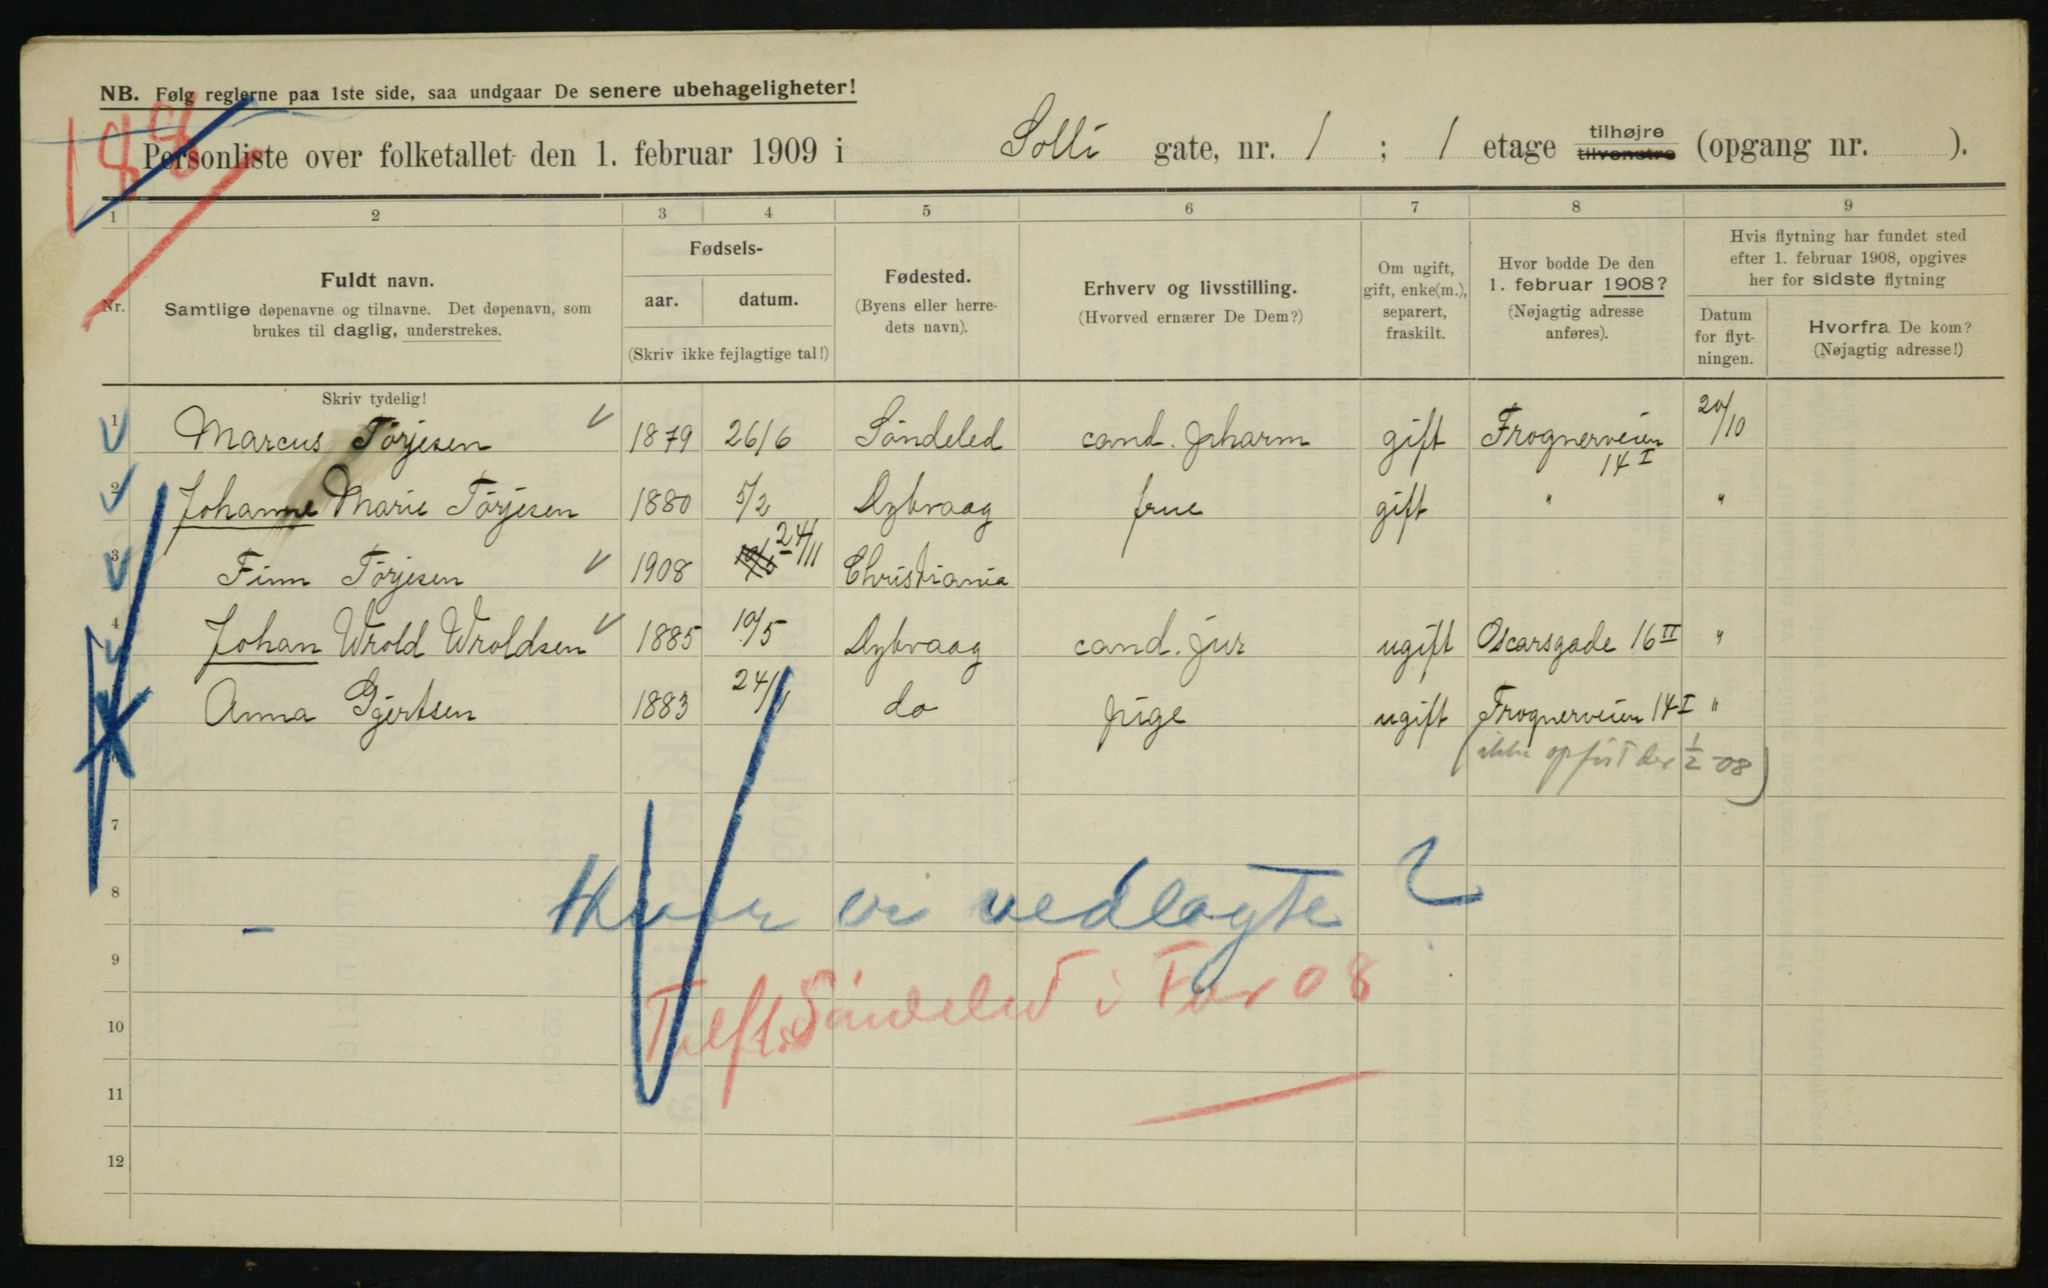 NB. Følg reglerne paa 1ste side, saa undgaar De senere ubehageligheter!
Personliste over folketallet den 1. februar 1909 i Solli gate, nr. 1 ; 1 etage tilhøjre tilvenstre (opgang nr. ).
1 2 3 4 5 6 7 8 9
Nr.
Fuldt navn.
Samtlige døpenavne og tilnavne. Det døpenavn, som
brukes til daglig, understrekes.
Fødsels-
aar. datum.
(Skriv ikke fejlagtige tal!)
Fødested.
(Byens eller herre-
dets navn).
Erhverv og livsstilling.
(Hvorved ernærer De Dem?)
Om ugift,
gift, enke(m.),
separert,
fraskilt.
Hvor bodde De den
1. februar 1908?
(Nøjagtig adresse
anføres).
Hvis flytning har fundet sted
efter 1. februar 1908, opgives
her for sidste flytning
Datum
for flyt-
ningen.
Hvorfra De kom?
(Nøjagtig adresse!)
Skriv tydelig!
1 Marcus Tørjesen 1879 26/6 Søndeled cand. pharm gift Frognerveien 14 I 20/10
2 Johanne Marie Tørjesen 1880 5/2 Dybvaag frue gift " "
3 Finn Tørjesen 1908 24/11 Christiania
4 Johan Wrold Wroldsen 1885 10/5 Dybvaag cand. jur ugift Oscarsgade 16 II "
Anna Gjertsen 1883 24/1 do pige ugift Frognerveien 14 I "
6 (ikke opført der 1/2 -08)
7
8 Hvor er vedlagte ?
9
10 Søndeled i For 08
11
12